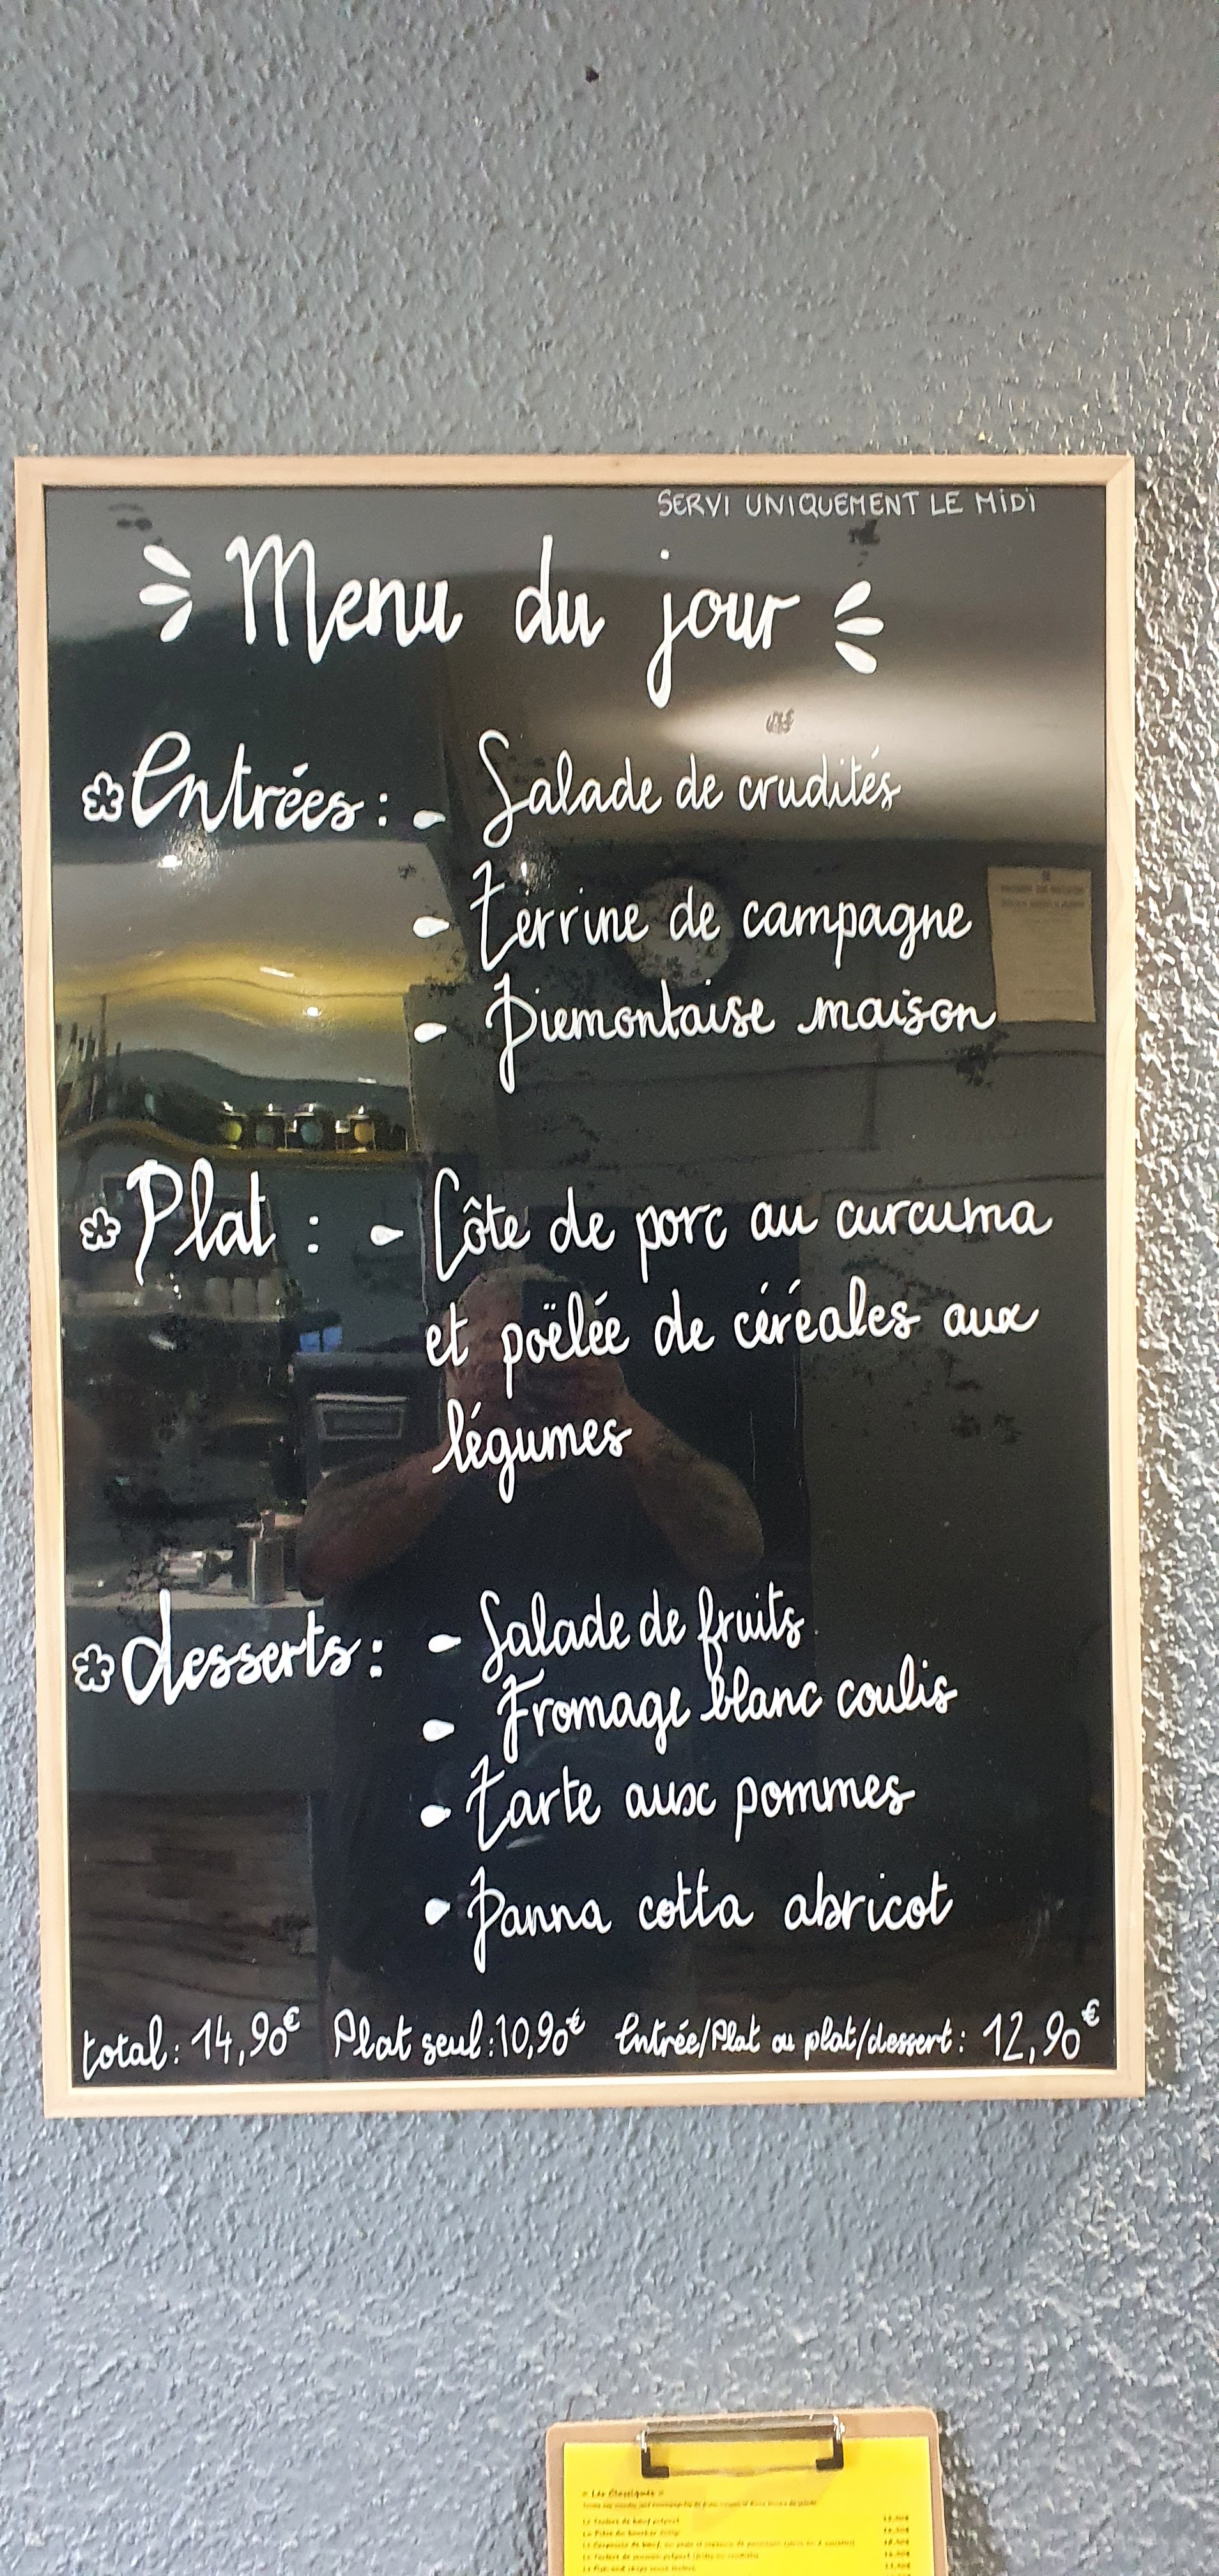 SERVI UNIQUEMENT LE MIDI
Menu du jour
Entrées : - Salade de crudités
- Terrine de campagne
- Piemontaise maison
Plat : - Côte de porc au curcuma
et poëlée de céréales aux
légumes
desserts : - Salade de fruits
- Fromage blanc coulis
- Tarte aux pommes
- Panna cotta abricot
total : 14,90€ Plat seul : 10,90€ Entrée/Plat ou plat/dessert : 12,90€
Les Classiques